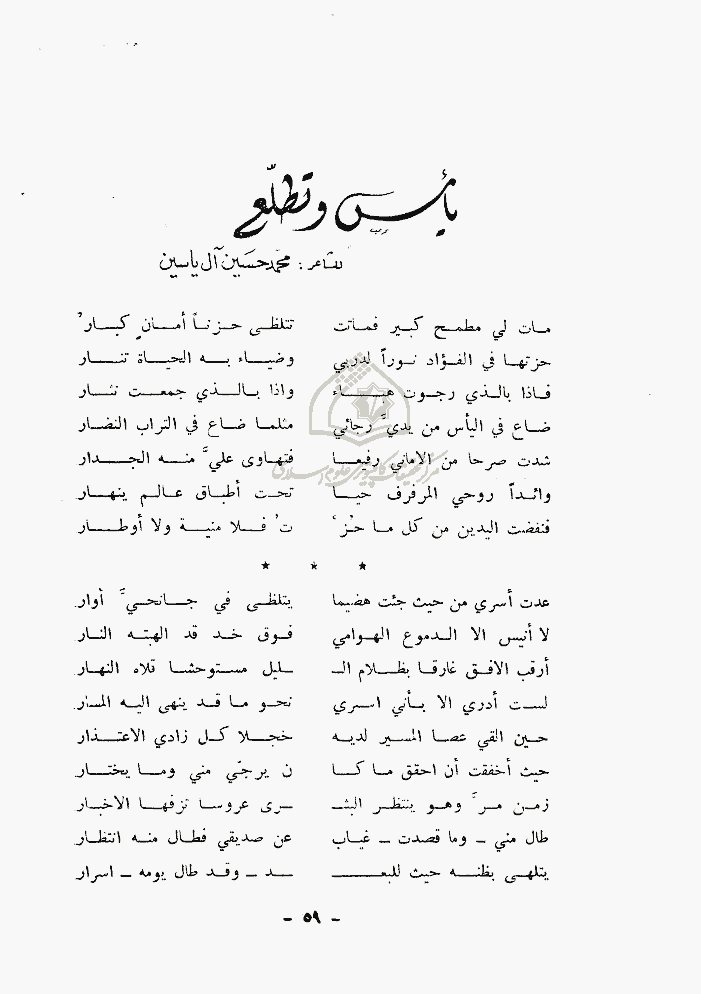 يأس وتطلّع
للشاعر : محمد حسين آل ياسين
مات لي مطمح كبير فماتت تتلظى حزناً أمانٍ كبار'
حزتها في الفؤاد نوراً لدربي وضياء به الحياة تنار
فاذا بالذي رجوت هباء واذا بالذي جمعت نثار
ضاع في اليأس من يديَّ رجائي مثلما ضاع في التراب النضار
شدت صرحا من الاماني رفيعا فتهاوى عليَّ منه الجدار
وائداً روحي المرفرف حيا تحت أطباق عالم ينهار
فنفضت اليدين من كل ما حُزْ تُ فلا منية ولا أوطار
* * *
عدت أسري من حيث جئت هضيما يتلظى في جانحيَّ أوار
لا أنيس الا الدموع الهوامي فوق خد قد الهبته النار
أرقب الافق غارقا بظلام الـ ـليل مستوحشا قلاه النهار
لست أدري الا بأني اسري نحو ما قد ينهى اليه المسار
حين القي عصا المسير لديه خجلا كل زادي الاعتذار
حيث أخفقت أن احقق ما كا ن يرجّي مني وما يختار
زمن مرَّ وهو ينتظر البشـ ـرى عروسا تزفها الاخبار
طال مني - وما قصدت - غياب عن صديقي فطال منه انتظار
يتلهى بظنه حيث للبعـ ـد - وقد طال يومه - اسرار
- ٥٩ -